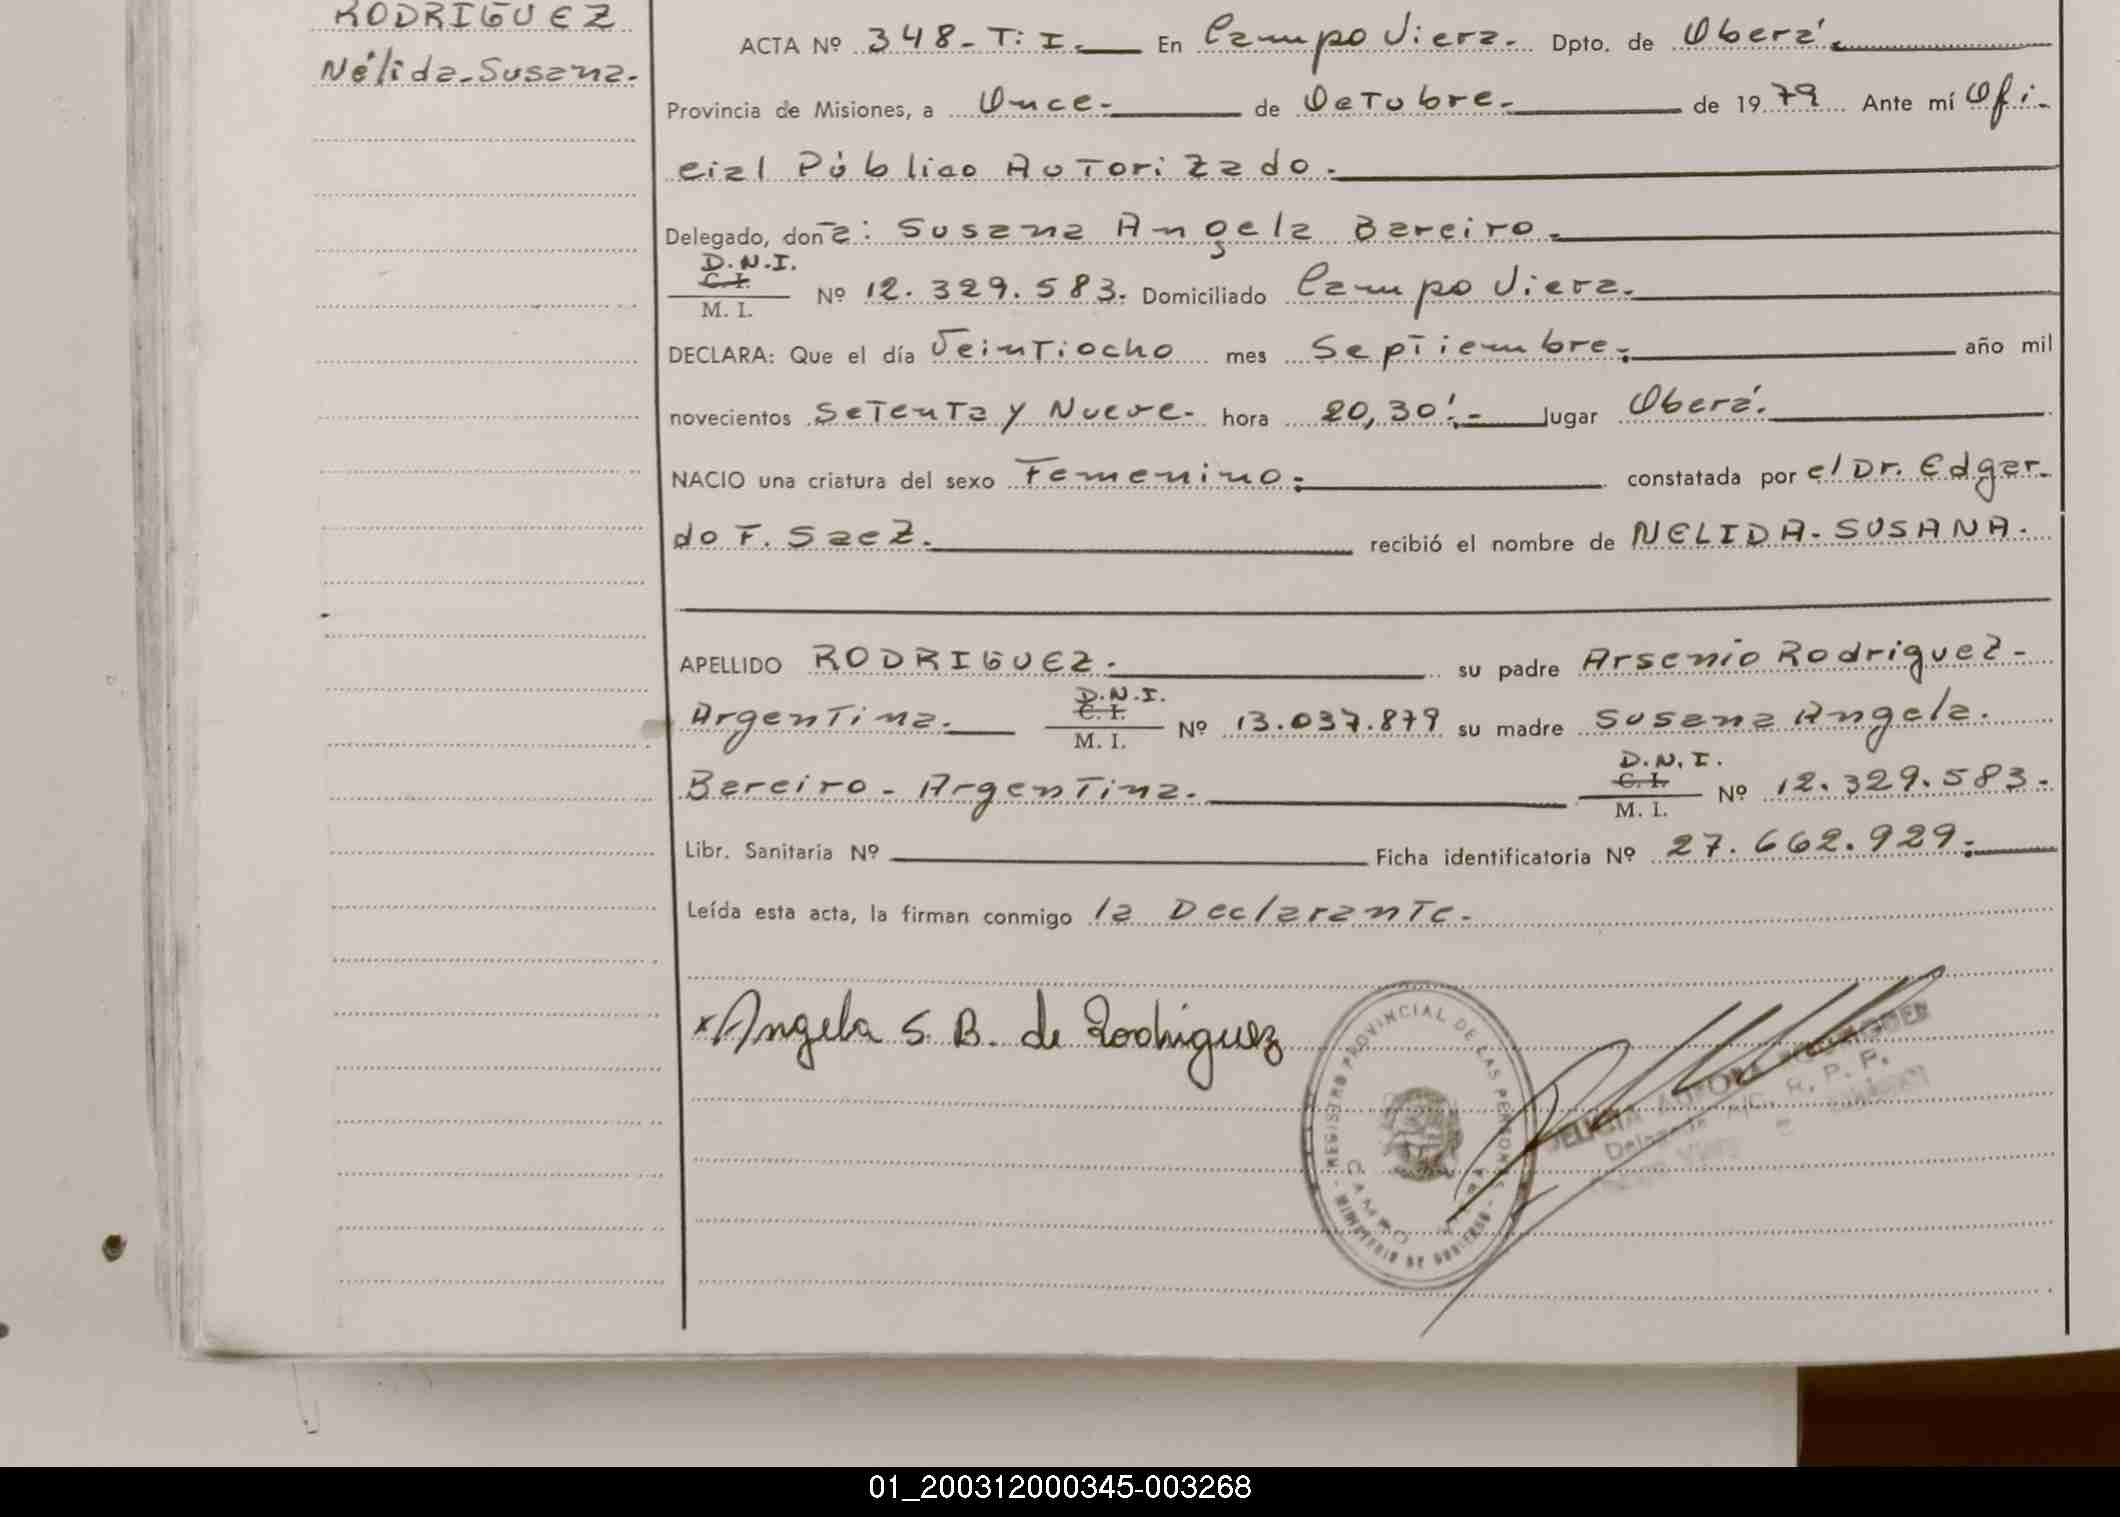 RODRIGUEZ
Nélida-Susana.
ACTA Nº 348-T: I. En Campo Viera. Dpto. de Oberá.
Provincia de Misiones, a Once. de Octubre. de 1979 Ante mí Ofi-
cial Público Autorizado.
Delegado, don a: Susana Angela Bareiro.
D.N.I.
C. I.
M. I.
Nº 12.329.583. Domiciliado Campo Viera.
DECLARA: Que el día Veintiocho mes Septiembre. año mil
novecientos Setenta y Nueve. hora 20,30'.- lugar Oberá.
NACIO una criatura del sexo Femenino. constatada por el Dr. Edgar-
do F. Saez. recibió el nombre de NELIDA-SUSANA.
APELLIDO RODRIGUEZ. su padre Arsenio Rodriguez-
D.N.I.
C. I.
M. I.
Argentina. Nº 13.037.879 su madre Susana Angela.
D.N.I.
C. I.
M. I.
Bareiro - Argentina. Nº 12.329.583.
Libr. Sanitaria Nº Ficha identificatoria Nº 27.662.929.
Leída esta acta, la firman conmigo la Declarante.
x Angela S. B. de Rodriguez
REGISTRO PROVINCIAL DE LAS PERSONAS
CAMPO VIERA
MINISTERIO DE GOBIERNO
Delegada A/C. R. P. P.
01_200312000345-003268